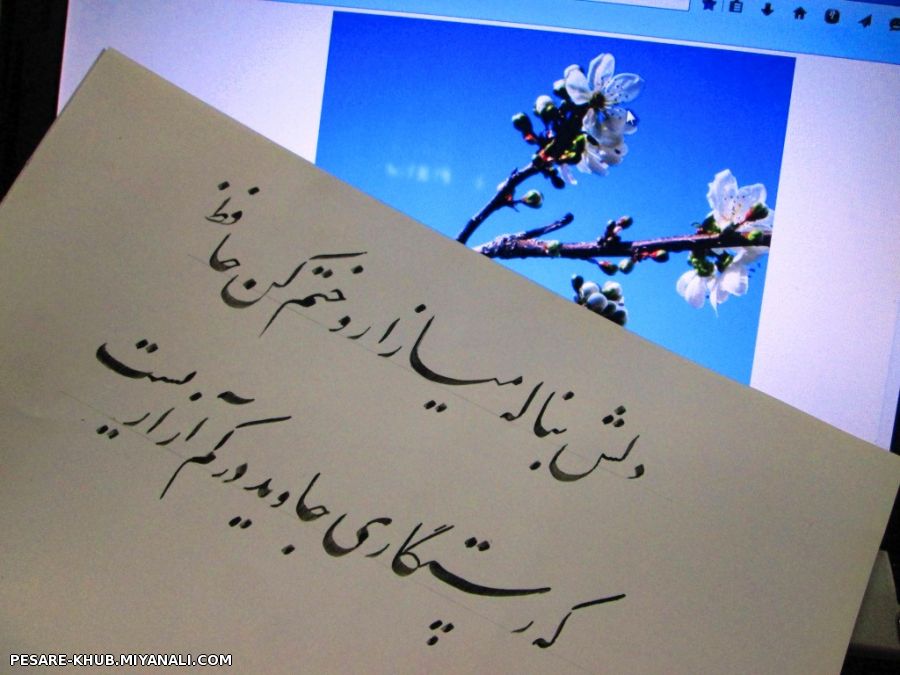 دلش بناله میازار و ختم کن حافظ
که رستگاری جاوید در کم آزاریست
PESARE-KHUB.MIYANALI.COM